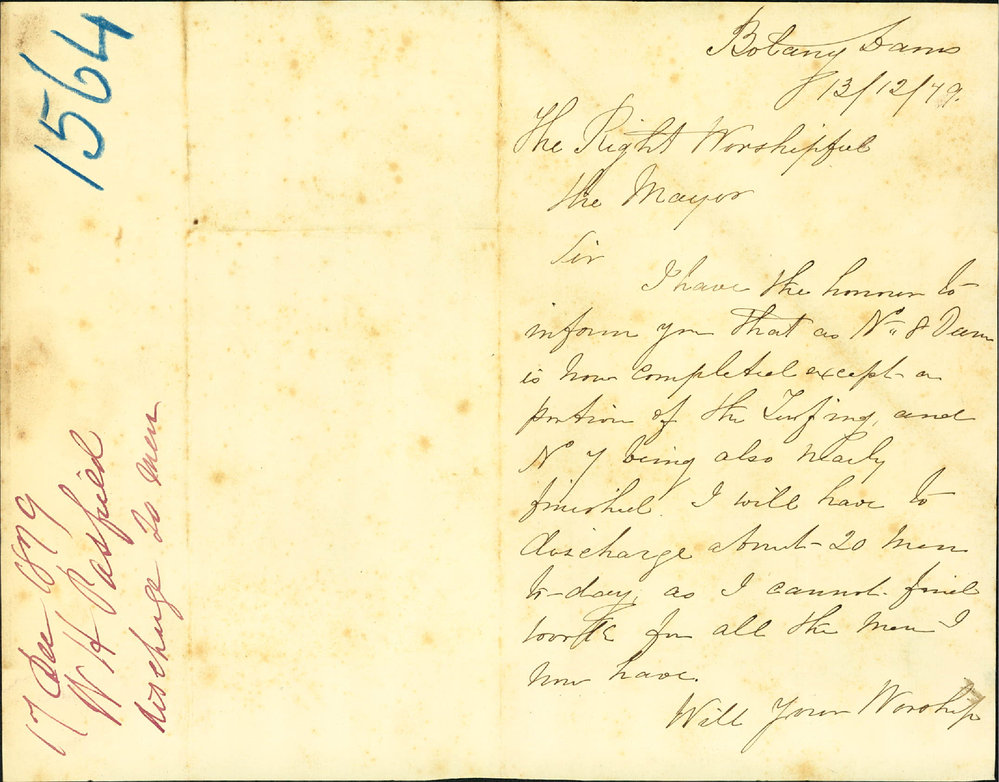 1564
17 Dec 1879
W H Rassfield
discharge 20 men
Botany Dams
13/12/79.
The Right Worshipful
the Mayor
Sir
I have the honour to
inform you that as No 8 Dam
is now completed except a
portion of the Turfing, and
No 7 being also nearly
finished. I will have to
discharge about 20 men
to-day, as I cannot find
work for all the men I
now have.
Will Your Worship